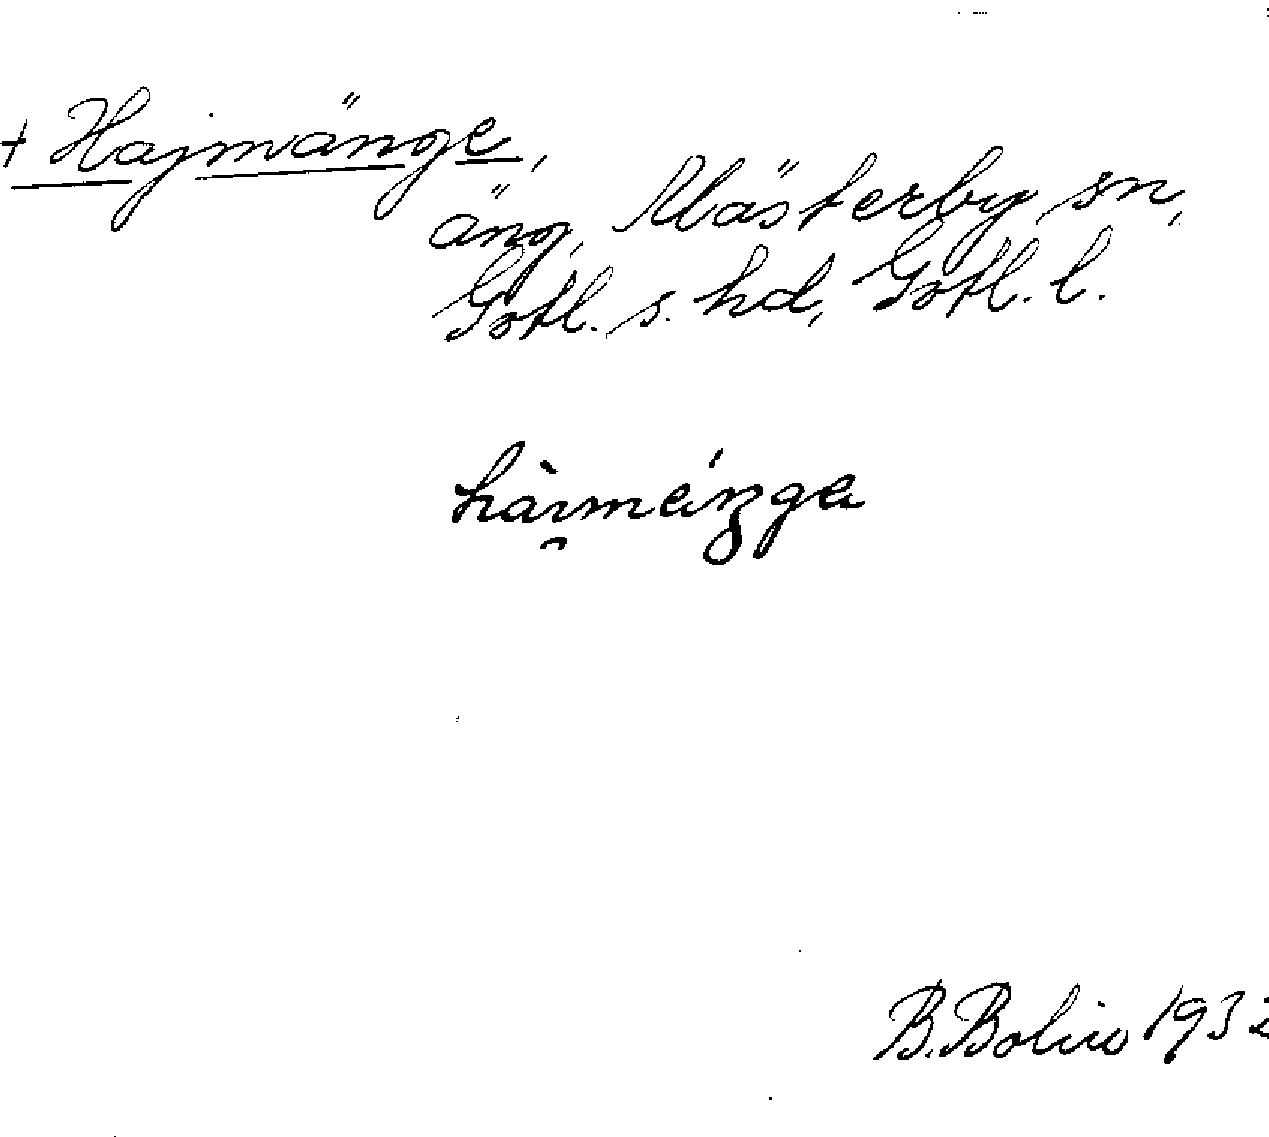 + Hajmänge,
äng, Mästerby sn,
Gotl. s. hd, Gotl. l.
B. Bolin 1932